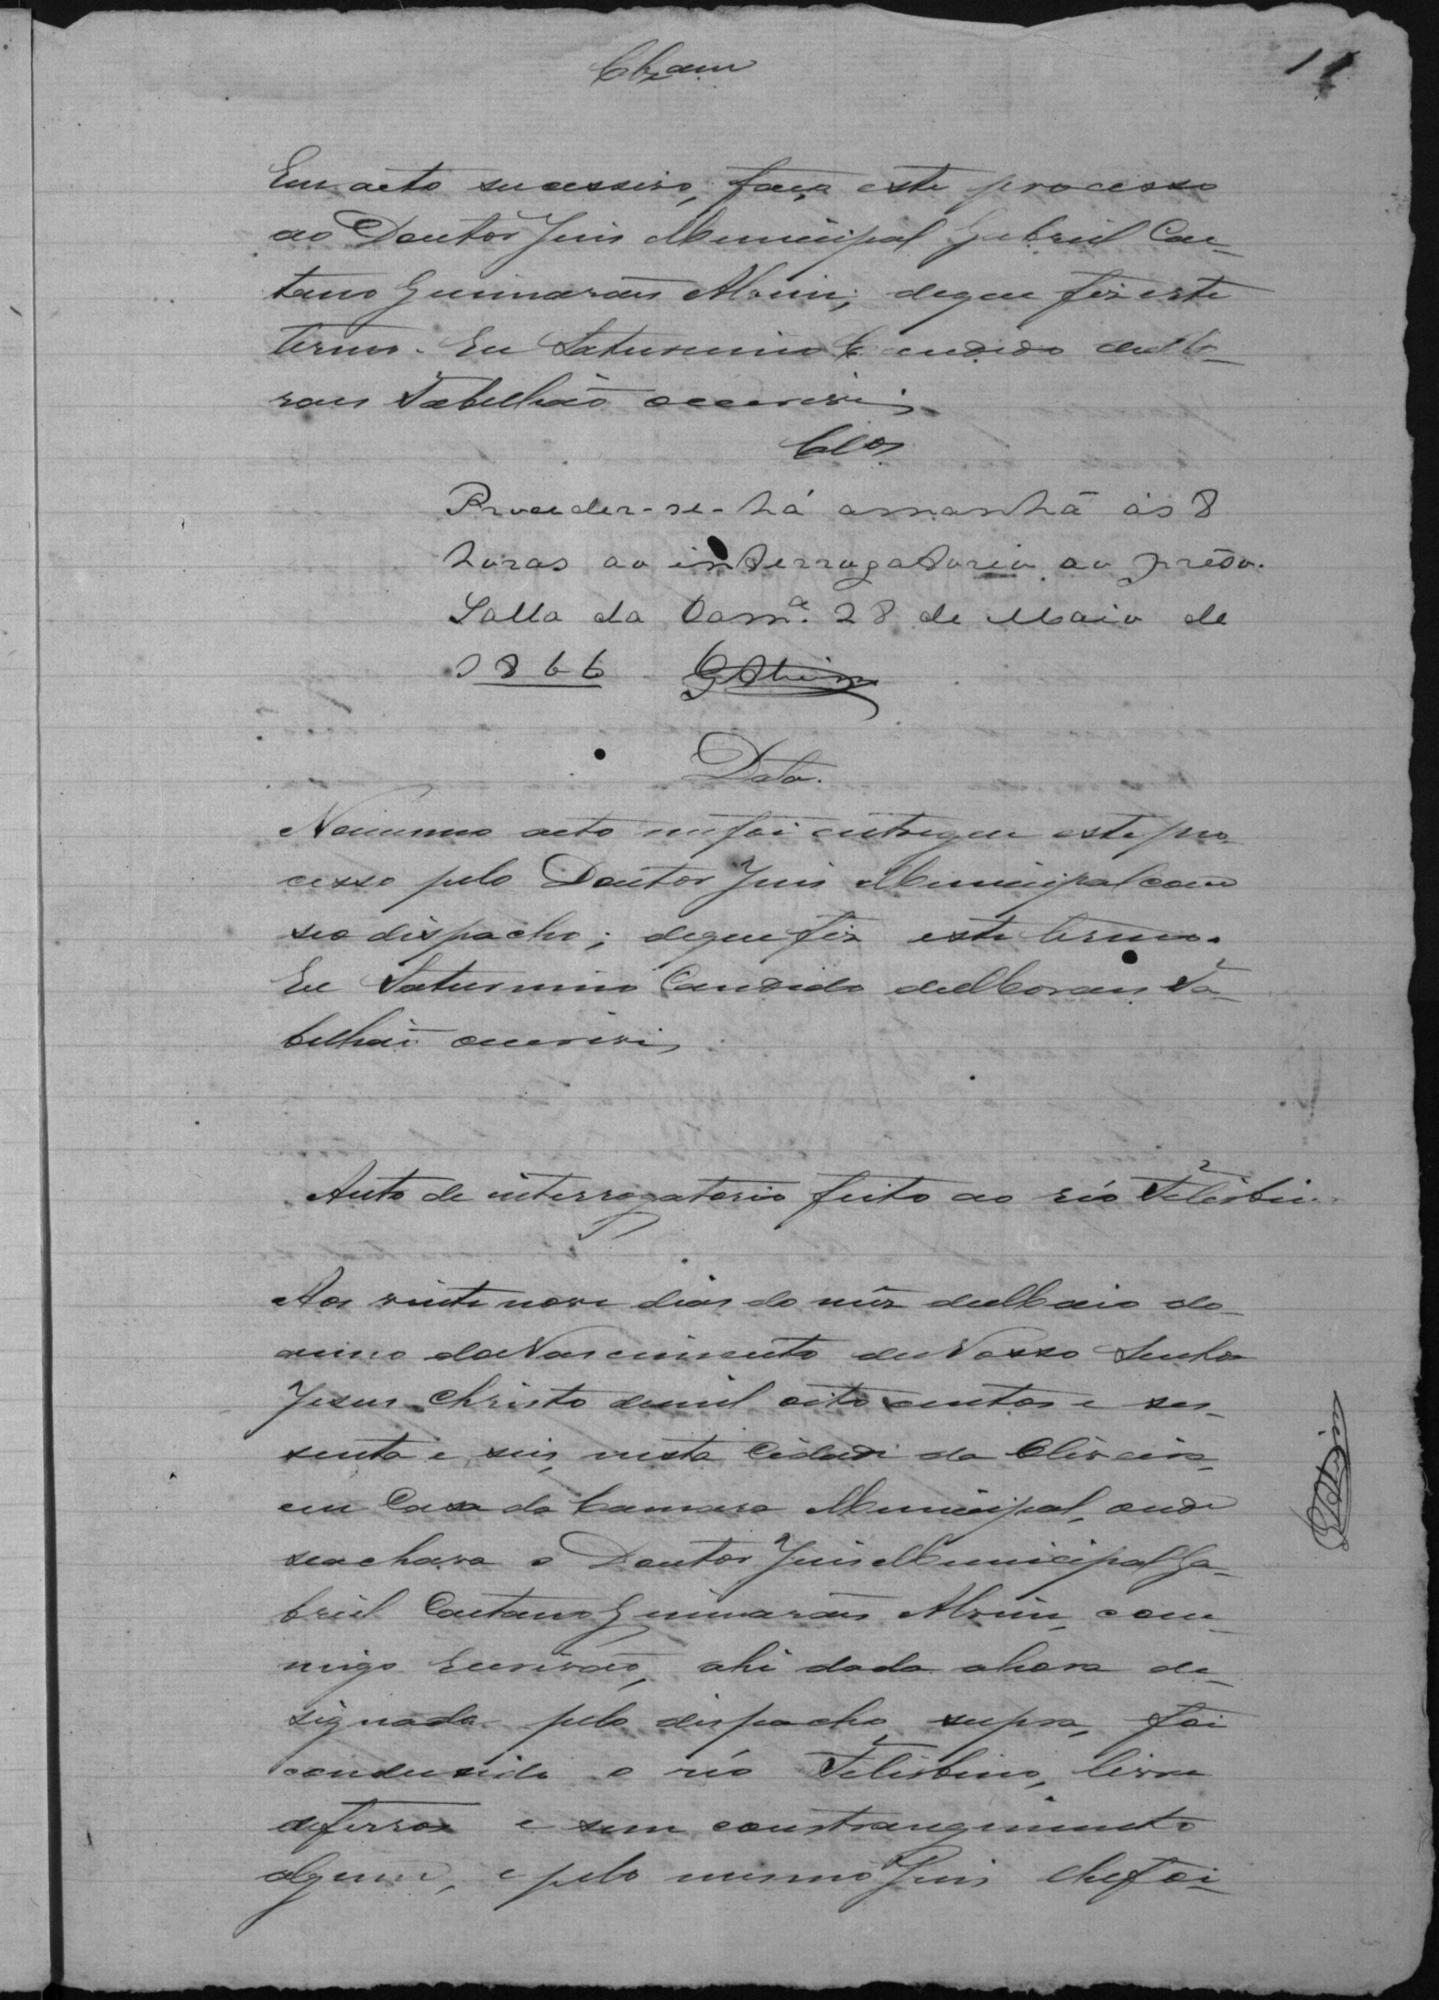 11
Em acto sucessivo, faço este processo
ao Doutor Juis Municipal Gabriel Cae-
tano Guimarães Alvim; deque fis este
termo. Eu Saturnino Candido deMo-
raes Tabelhão oescrivi
Clos
Proceder-se-há amanhã ás 8
horas ao interrogatorio ao prêso.
Salla da Cam.ª 28 de Maio de
1866 GAlvim
Data.
Nomesmo acto mefoi entregue este pro-
cesso pelo Doutor Juis Municipal com
seo dispacho; dequefis este termo.
Eu Saturnino Candido deMoraes Ta-
belhão oescrivi
Auto de interrogatorio feito ao réo Felisbino
Aos vinte nove dias do mês deMaio do
anno doNascimento deNosso Senhor
Jesus Christo demil oito centos e ses-
senta e seis, nesta Cidade da Oliveira,
em Casa da Camara Municipal, onde
seachava o Doutor Juis Municipal Ga-
briel Caetano Guimarães Alvim, com-
migo Escrivão, ahi dada ahora de-
signada pelo dispacho supra, foi
condusido o réo Felisbino, livre
deferros e sem constrangimento
algum, e pelo mesmo Juis lhefoi-
GAlvim